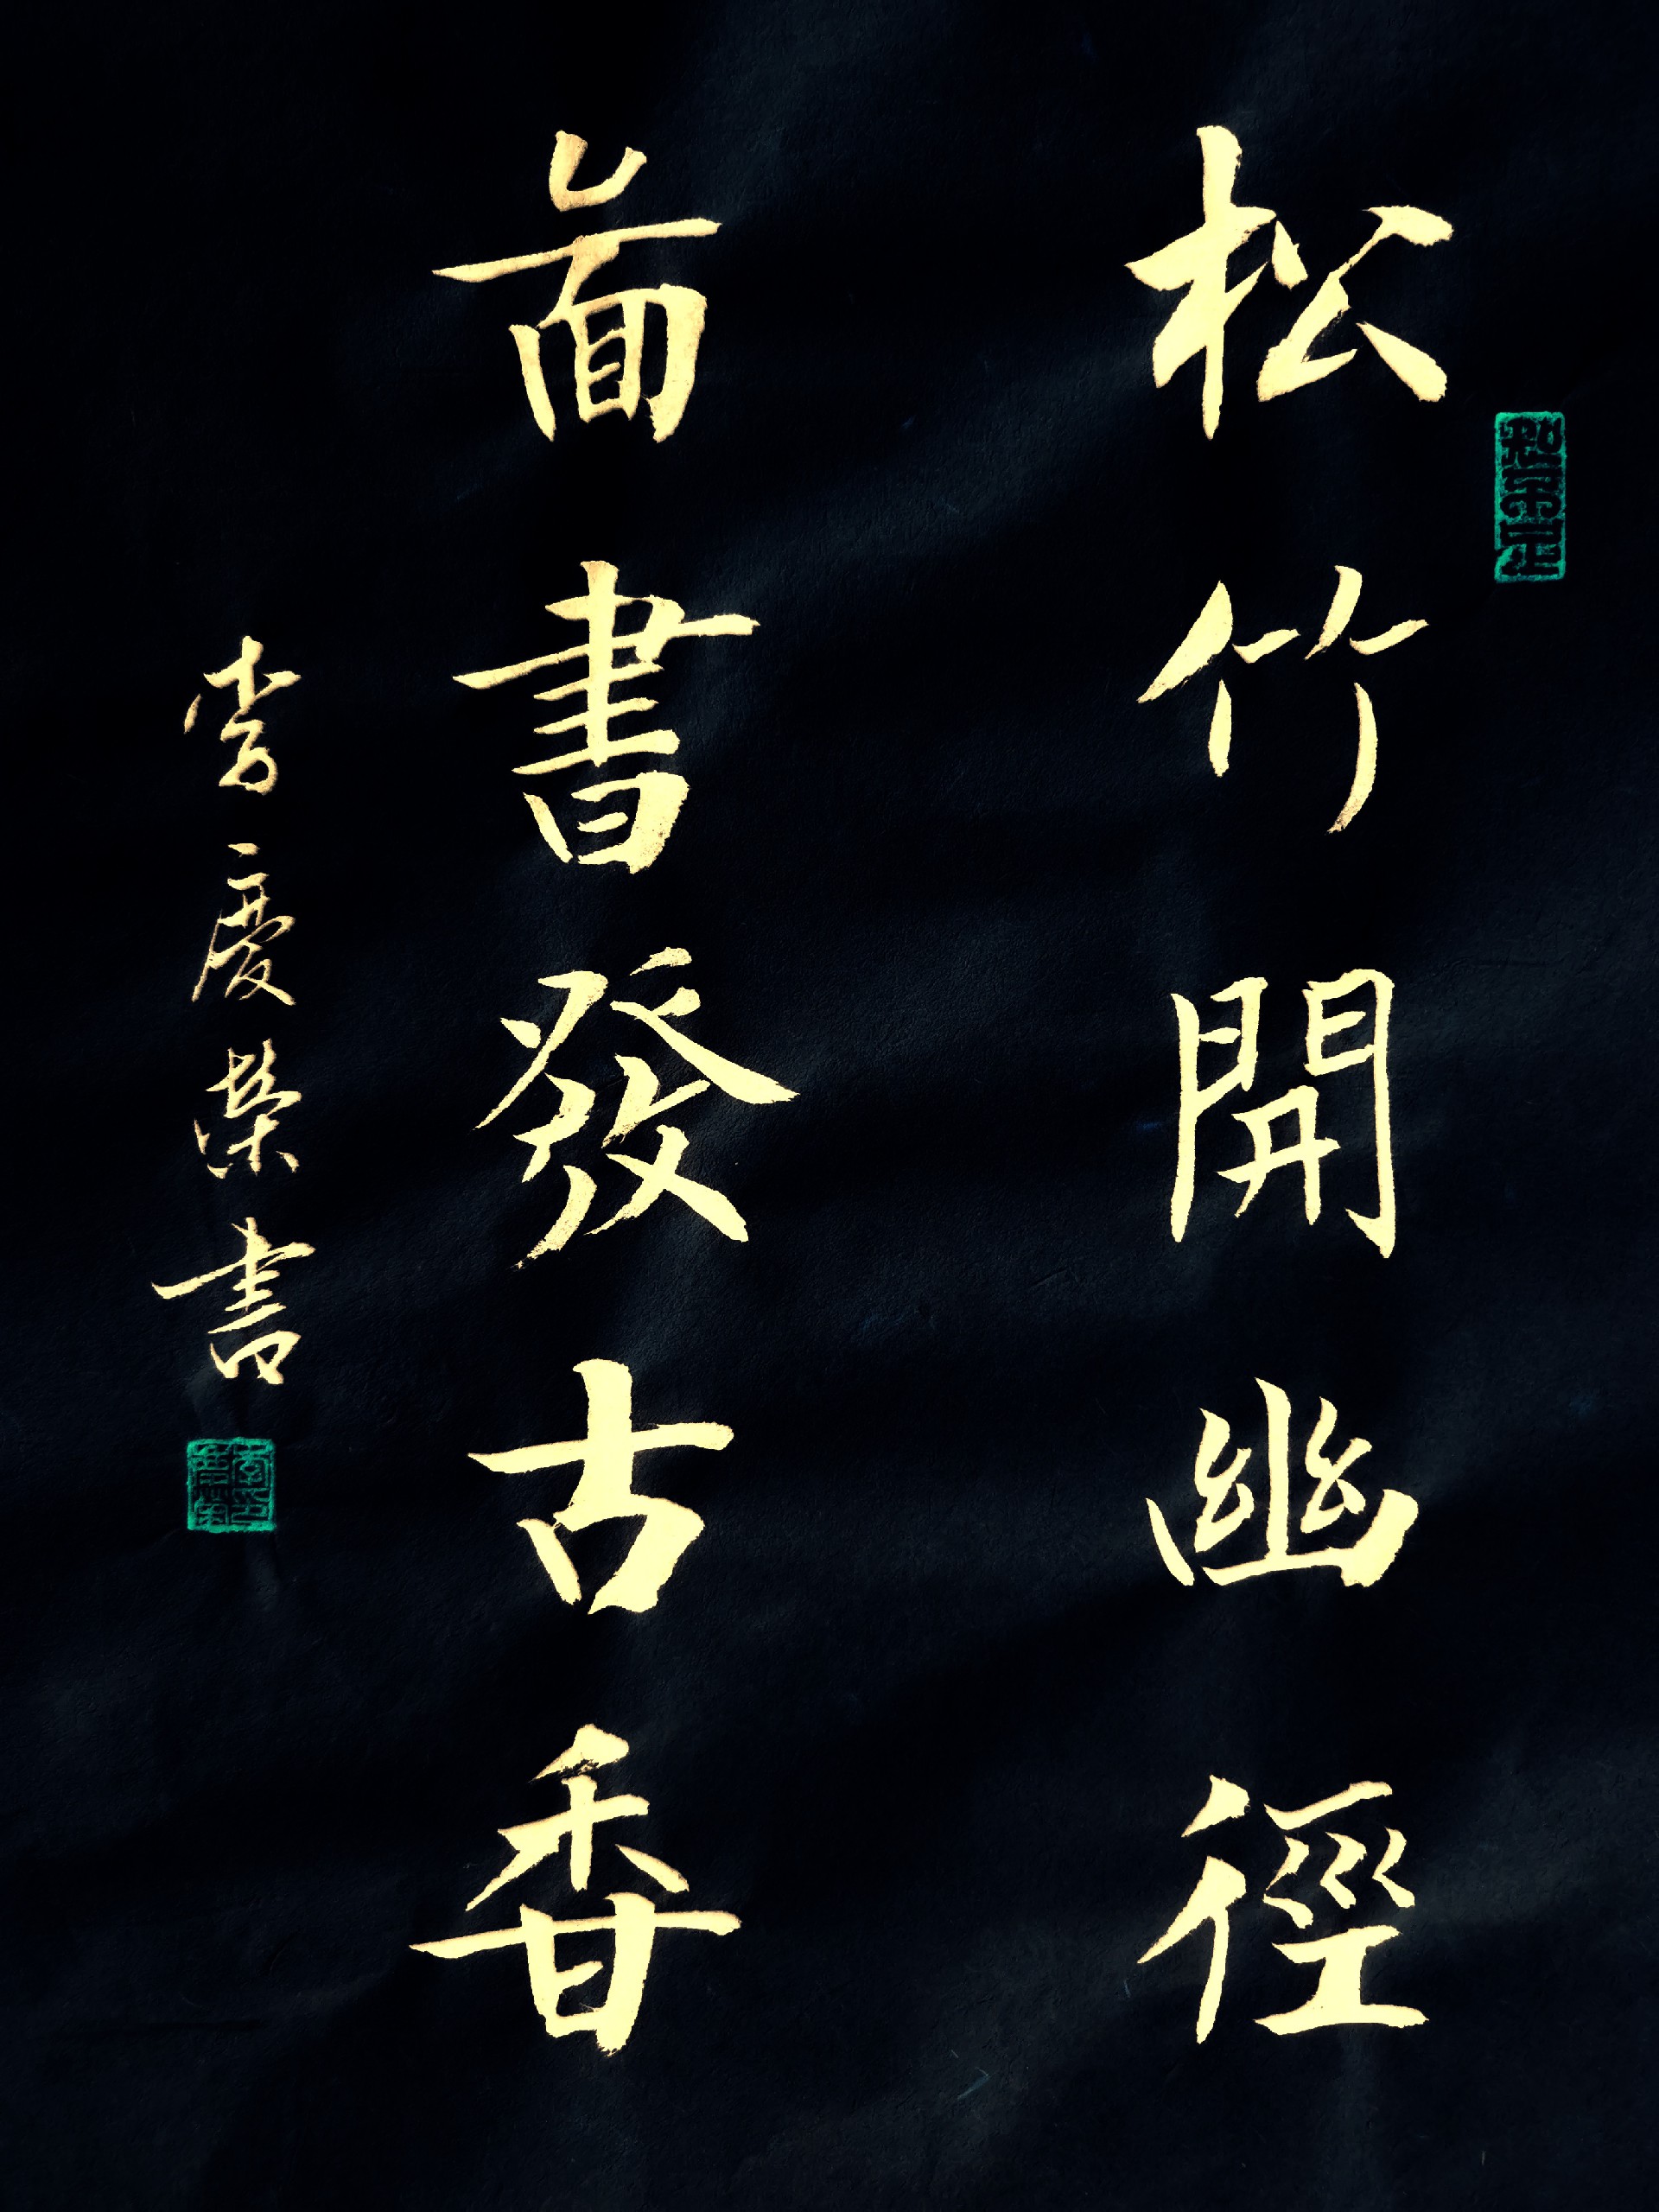 松竹開幽徑
啚書發古香
李慶榮書